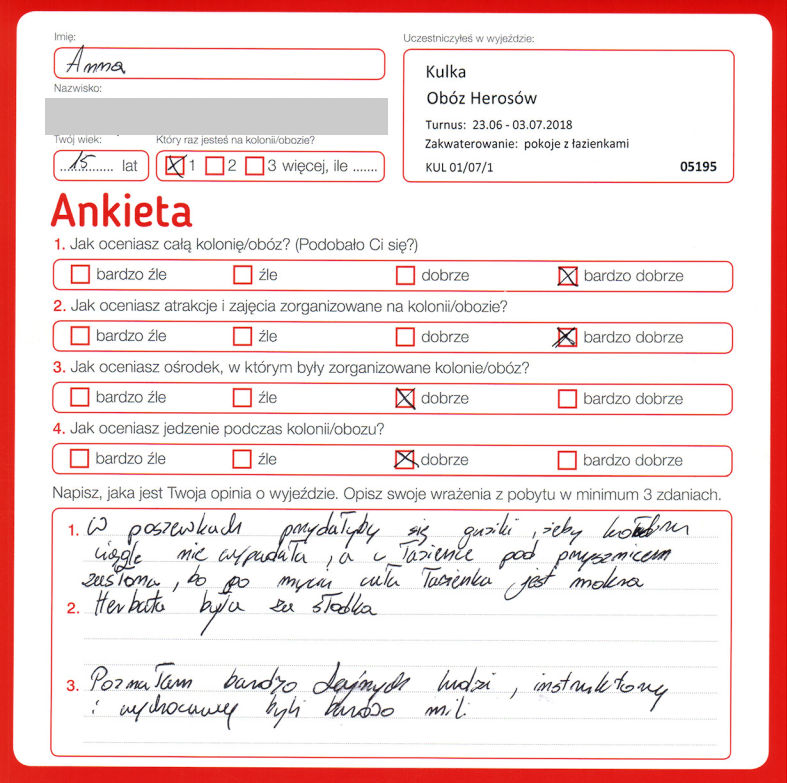 Imię:
Anna
Nazwisko:
Twój wiek:
Który raz jesteś na kolonii/obozie?
15 lat
1 2 3 więcej, ile .......
Uczestniczyłeś w wyjeździe:
Kulka
Obóz Herosów
Turnus: 23.06 - 03.07.2018
Zakwaterowanie: pokoje z łazienkami
KUL 01/07/1 05195
Ankieta
1. Jak oceniasz całą kolonię/obóz? (Podobało Ci się?)
bardzo źle źle dobrze bardzo dobrze
2. Jak oceniasz atrakcje i zajęcia zorganizowane na kolonii/obozie?
bardzo źle źle dobrze bardzo dobrze
3. Jak oceniasz ośrodek, w którym były zorganizowane kolonie/obóz?
bardzo źle źle dobrze bardzo dobrze
4. Jak oceniasz jedzenie podczas kolonii/obozu?
bardzo źle źle dobrze bardzo dobrze
Napisz, jaka jest Twoja opinia o wyjeździe. Opisz swoje wrażenia z pobytu w minimum 3 zdaniach.
1. W poszewkach przydałyby się guziki, żeby kołdra
ciągle nie wypadała, a w łazience pod prysznicem
zasłona, bo po myciu cała łazienka jest mokra
2. Herbata była za słodka
3. Poznałam bardzo fajnych ludzi, instruktorzy
i wychowawcy byli bardzo mili